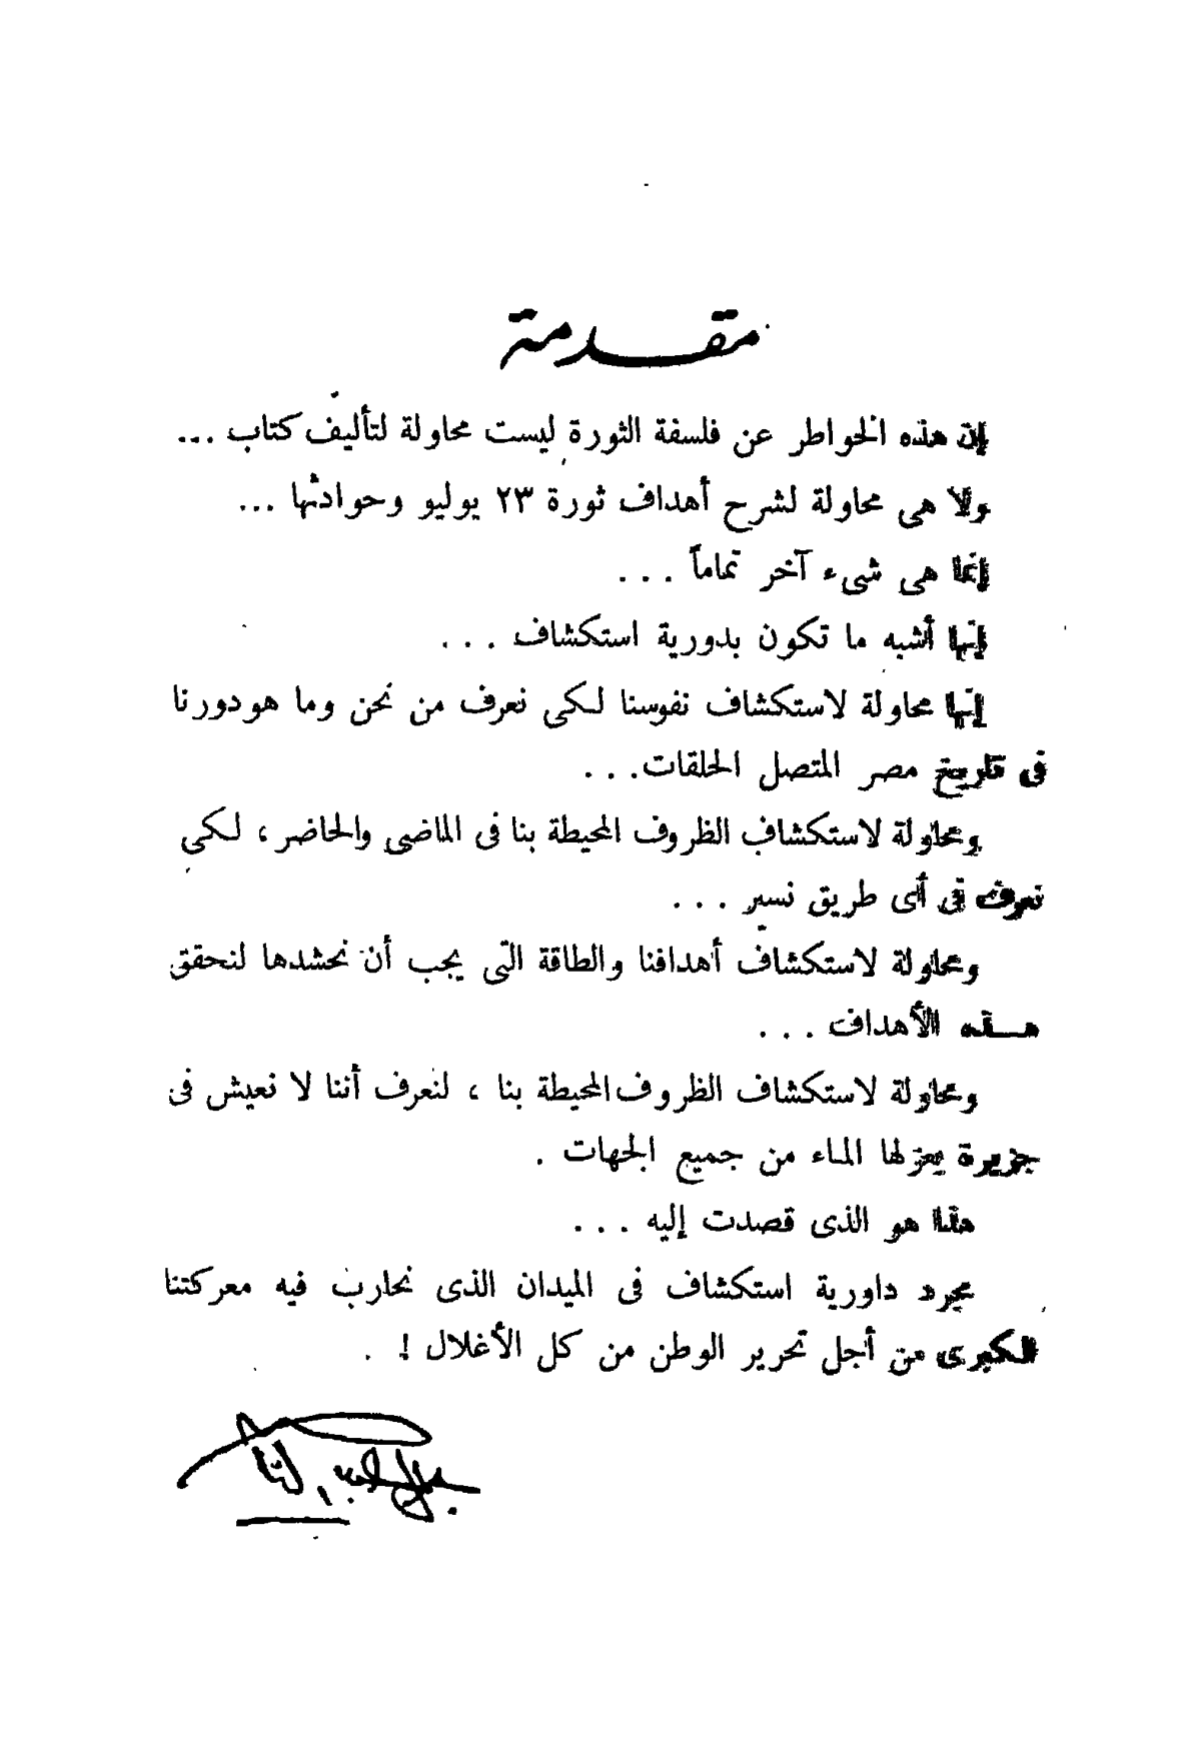 مقدمة
إن هذه الخواطر عن فلسفة الثورة ليست محاولة لتأليف كتاب ...
ولا هى محاولة لشرح أهداف ثورة ٢٣ يوليو وحوادثها ...
إنما هى شىء آخر تماماً ...
إنها أشبه ما تكون بدورية استكشاف ...
إنها محاولة لاستكشاف نفوسنا لكى نعرف من نحن وما هو دورنا
فى تاريخ مصر المتصل الحلقات ...
ومحاولة لاستكشاف الظروف المحيطة بنا فى الماضى والحاضر ، لكى
نعرف فى أى طريق نسير ...
ومحاولة لاستكشاف أهدافنا والطاقة التى يجب أن نحشدها لنحقق
هذه الأهداف ...
ومحاولة لاستكشاف الظروف المحيطة بنا ، لنعرف أننا لا نعيش فى
جزيرة يعزلها الماء من جميع الجهات .
هذا هو الذى قصدت إليه ...
مجرد داورية استكشاف فى الميدان الذى نحارب فيه معركتنا
الكبرى من أجل تحرير الوطن من كل الأغلال ! .